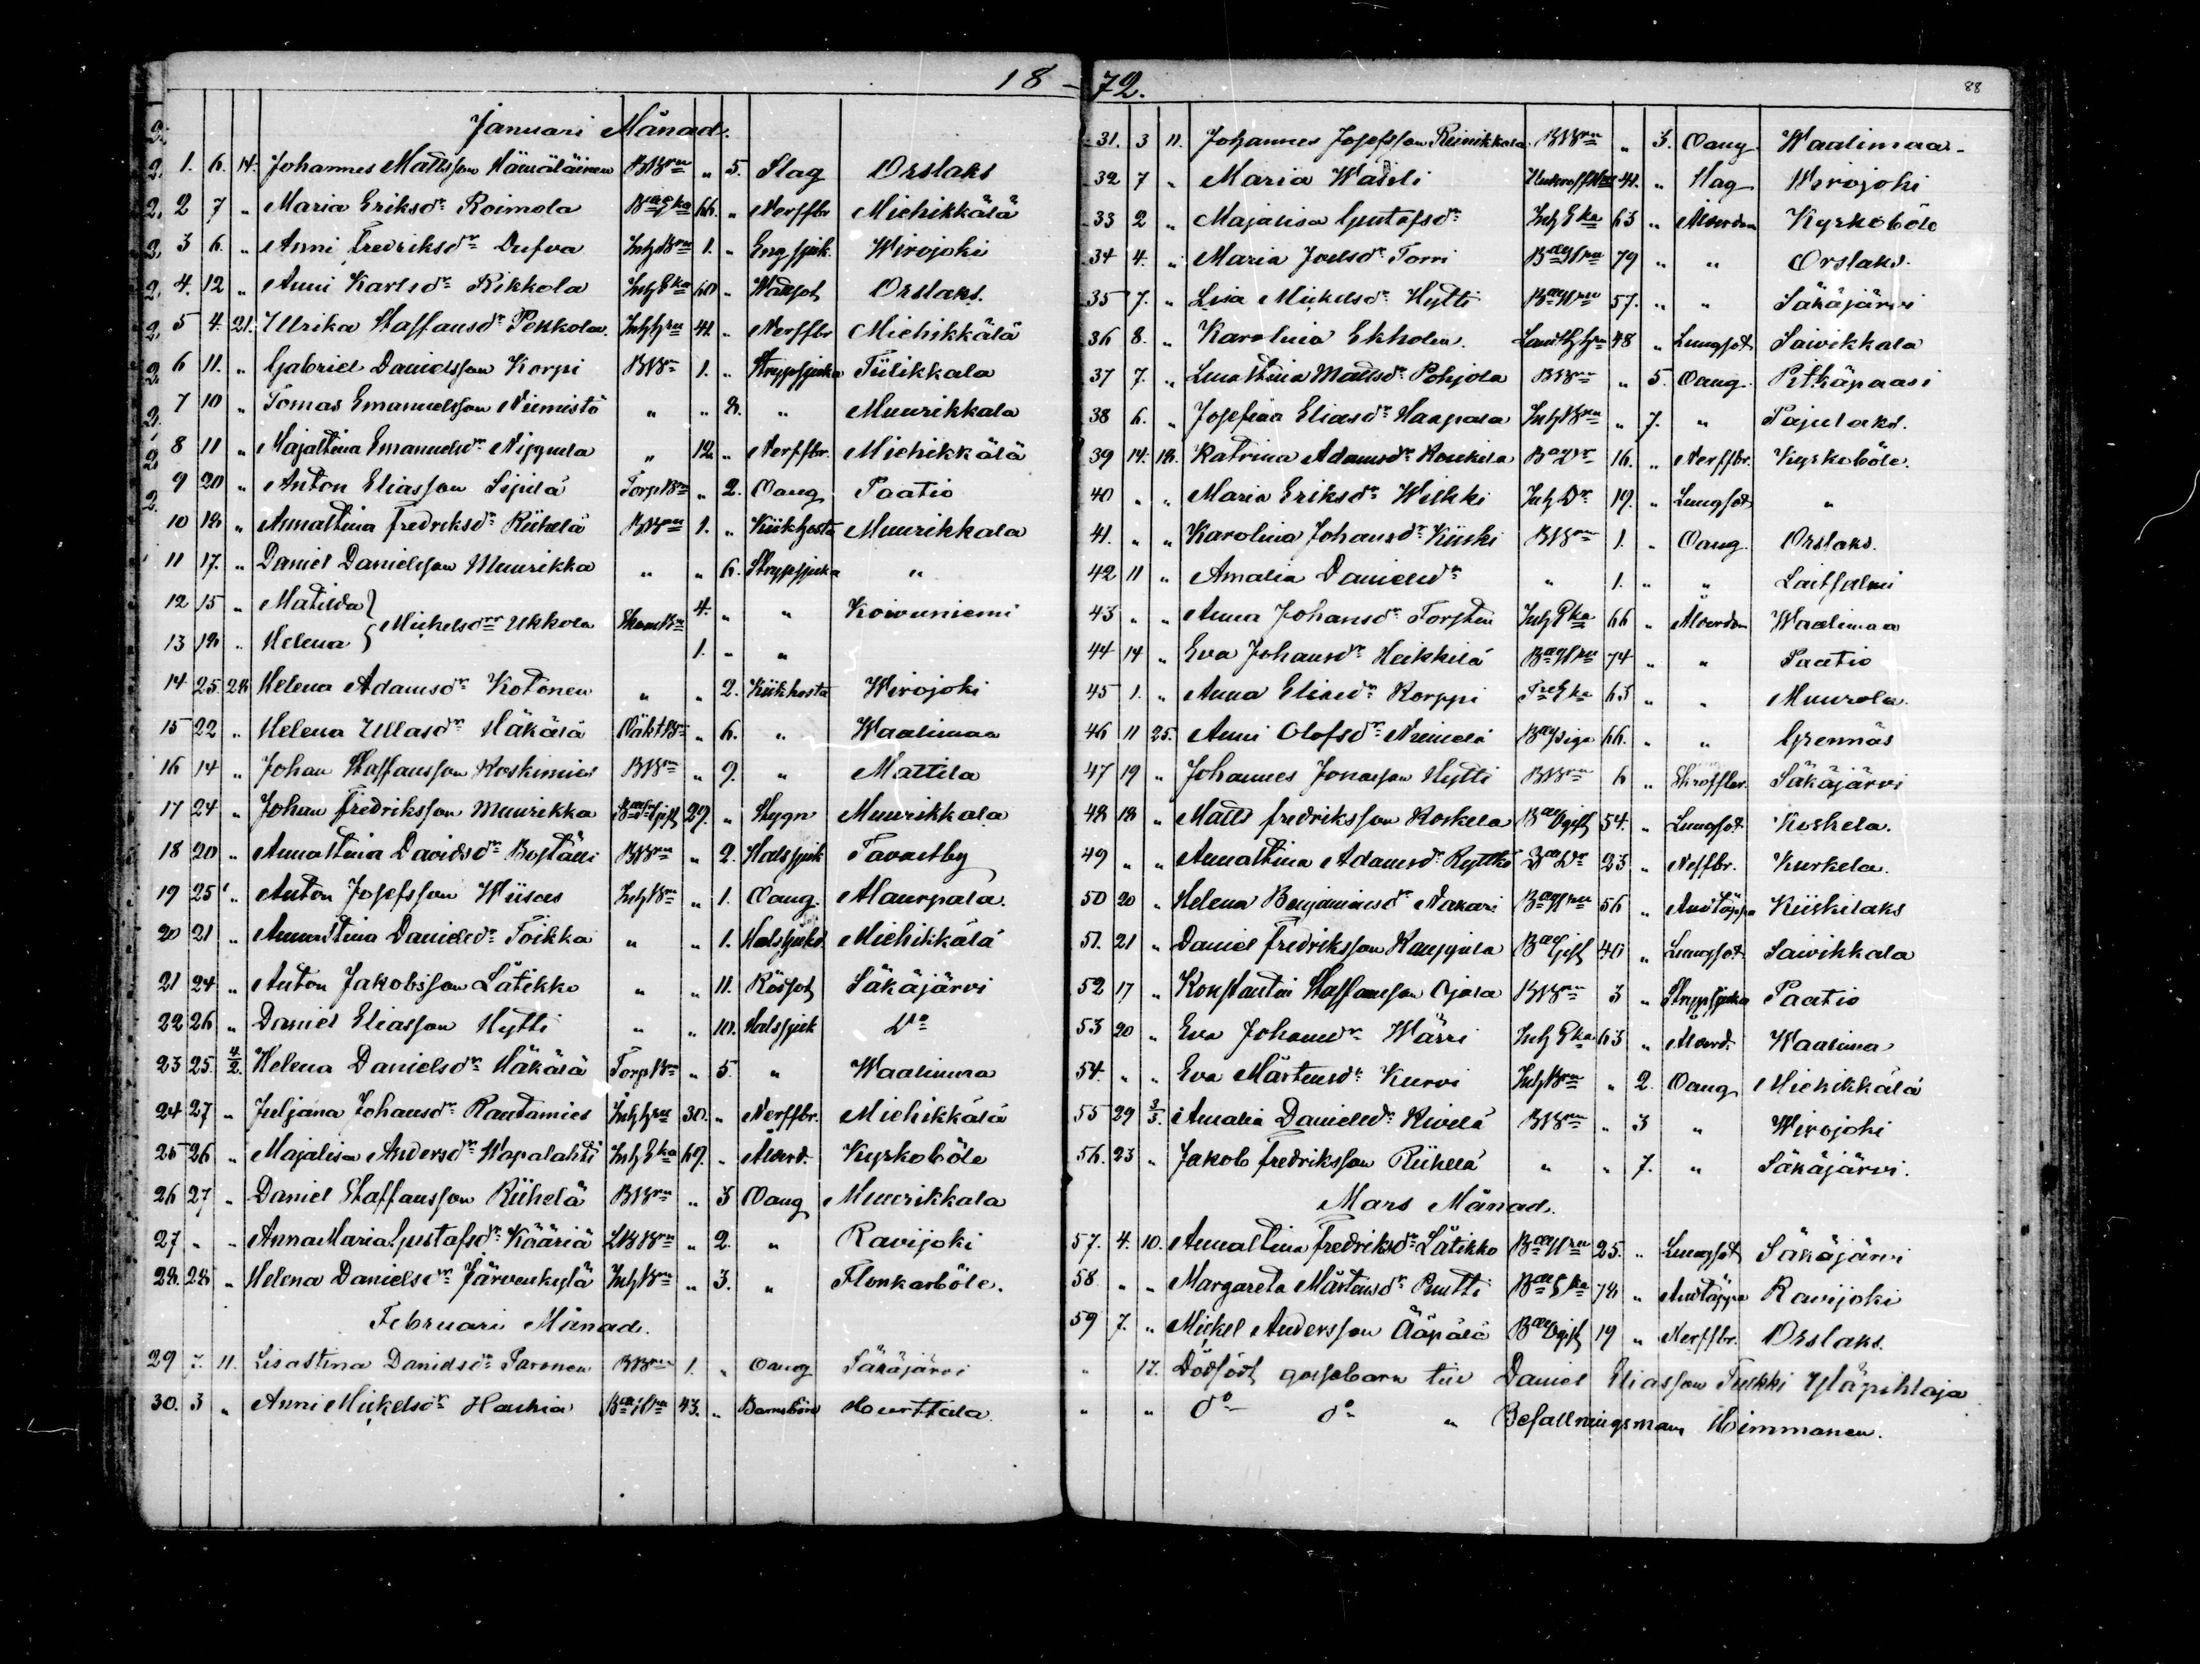 18-72.
88
Januari Månad.
1. 6. 14. Johannes Mattsson Hämäläinen BBrn " 5. Slag Orslaks
2 7 " Maria Eriksdr Roimola Bae Eka 66. " Nerffbr Miehikkälä
3 6. " Anni Fredriksdr Dufva InhBrn 1. " Engsjuk. Wirojoki
4. 12 " Anni Karlsdr Rikkola InhEka 60 " Wattsot Orslaks.
5 4. 21. Ulrika Staffansdr Pekkola. Inhhru 41. " Nerffbr Miehikkälä
6 11. " Gabriel Danielsson Korpi BBrn 1. " Strypsjuka Tülikkala
7 10 " Tomas Emanuelsson Niemistö " " 8. " Muurikkala
8 11 " Majastina Emanuelsdr Nippula " 12 " Nerffbr. Miehikkälä
9 20 " Anton Eliasson Sipilä TorpBrn " 2. Oang Paatio
10 18 " Annastina Fredriksdr Riihelä BBrn 1. " Kikhosta Muurikkala
11 17. " Daniel Danielsson Muurikka " " 6. Strypsjuka "
12 15 " Matilda } Michelsdrr Ukkola 4. " " Koivuniemi
13 18 " Helena 1. " "
14 25 28 Helena Adamsdr Kotonen " " 2. Kikhosta Wirojoki
15 22 " Helena Ullasdr Häkälä " 6. " Waalimaa
16 14 " Johan Staffansson Koskimies BBrn " 9. " Mattila
17 24 " Johan Fredriksson Muurikka 29. " Stygn Muurikkala
18 20 " Annastina Davidsdr Boställi BBrn " 2. Halssjuk Tavastby
19 25 " Anton Josefsson Wiisas InhBrn " 1. Oang. Alaurpala.
20 21 " Annastina Danielsdr Toikka " " 1. Halssjuk Miehikkälä
21 24 " Anton Jakobsson Lätikko " " 11. Rödsot Säkäjärvi
22 26 " Daniel Eliasson Hytti " " 10. Halssjuk Do
23 25. 4/2. Helena Danielsdr Häkälä TorpBrn " 5. " Waalimaa
24 27 " Juljana Johansdr Rautamies Inhhru 30. " Nerffbr. Miehikkälä
25 26 " Majalisa Andersdr Wapalahti InhEka 69. " Ålderd. Kyrkoböle
26 27 " Daniel Staffansson Riihelä BBrn " 3 Oang Muurikkala
27 " " AnnaMaria Gustafsdr Kääriä LBBrn " 2. " Ravijoki
28. 28 " Helena Danielsdr Järvenkylä InhBrn " 3. " Flonkarböle.
Februari Månad.
29 7. 11. Lisastina Danielsdr Paronen BBrn 1. " Oang Säkäjärvi
30. 3 " Anni Mickelsdr Hauhia 43. " Barnsbörd Hurttala
31. 3 11. Johannes Josefsson Reinikkala BBrn " 3. Oang Waalimaa
32 7 " Maria Wasili 41. " Slag Wirojoki
33 2 " Majalisa Gustafsdr InhEka 63 " Ålderdom Kyrkoböle
34 4. " Maria Joelsdr Torri 79 " " Orslaks.
35 7. " Lisa Mickelsdr Hytti 57. " " Säkäjärvi
36 8. " Karolina Ekholm. 48 " Lungsot Saivikkala
37 7. " Lenastina Mattsdr Pohjola BBrn " 5. Oang. Pitkäpaasi
38 6. " Josefina Eliasdr Haapala InhBrn " 7. " Pajulaks.
39 14. 18. Katrina Adamsdr Koukila 16. " Nerffbr. Kyrkoböle.
40 " " Maria Eriksdr Wilkki InhDr 19. " Lungsot "
41. " " Karolina Johansdr Kiiski BBrn 1. " Oang. Orslaks.
42 11 " Amalia Danielsdr " 1. " " Laitsalmi
43 " " Anna Johansdr Torsten InhEka 66 " Ålderdom Waalimaa
44 14 " Eva Johansdr Heikkilä 74 " " Paatio
45 1. " Anna Eliasdr Korppi 63 " " Muurola.
46 11 25. Anni Olofsdr Niemelä 66. " " Grennäs
47 19 " Johannes Jonasson Hytti BBrn 6 " Skroffbr. Säkäjärvi
48 18 " Matts Fredriksson Koskela 54. " Lungsot Koskela.
49 " " Annastina Adamsdr Ryttkö 23 " Nerffbr. Kurkela.
50 20 " Helena Benjaminsdr Nakari 56 " Andtäppa Kiiskilaks
51. 21 " Daniel Fredriksson Kauppila 40 " Lungsot Saivikkala
52 17 " Konstantin Staffansson Ojala BBrn 3 " Strypsjuka Paatio
53 20 " Eva Johansdr Wärri InhEka 63 " Ålderd. Waalima
54. " " Eva Mårtensdr Kurvi InhBrn " 2. Oang Miehikkälä
55 29 3/3. Amalia Danielsdr Kivelä BBrn " 3 " Wirojoki
56. 23 " Jakob Fredriksson Riihelä " " 7. " Säkäjärvi.
Mars Månad.
57. 4. 10. Annastina Fredriksdr Lätikko 25. " Lungsot Säkäjärvi
58 " " Margareta Mårtensdr Puutti 78 " Andtäppa Ravijoki
59 7. " Mickel Andersson Ääpälä 19 " Nerffbr. Orslaks.
" 17. Dödfödt gossebarn till Daniel Eliasson Tulkki Yläpihlaja
" " do do " Befallningsman Himmanen.